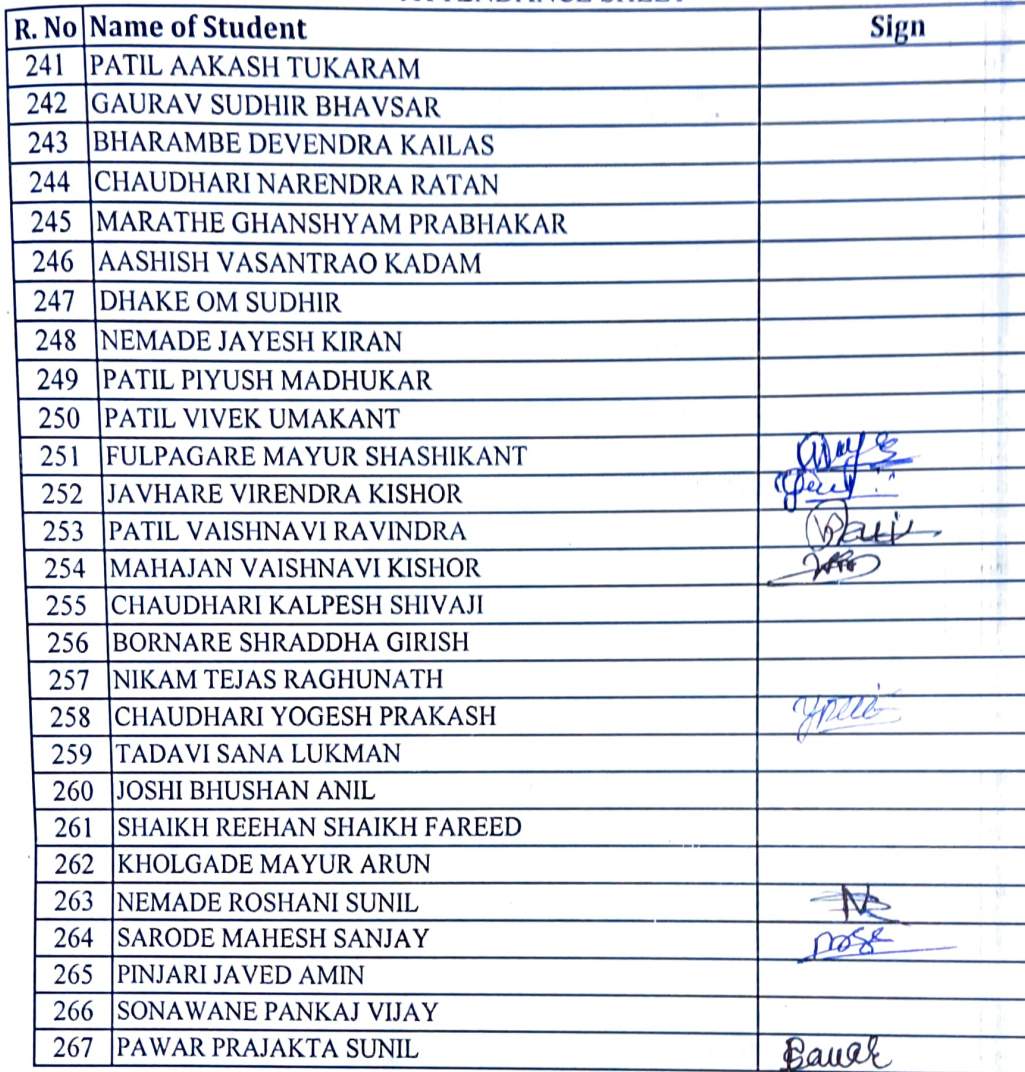 R. No Name of Student Sign
241 PATIL AAKASH TUKARAM
242 GAURAV SUDHIR BHAVSAR
243 BHARAMBE DEVENDRA KAILAS
244 CHAUDHARI NARENDRA RATAN
245 MARATHE GHANSHYAM PRABHAKAR
246 AASHISH VASANTRAO KADAM
247 DHAKE OM SUDHIR
248 NEMADE JAYESH KIRAN
249 PATIL PIYUSH MADHUKAR
250 PATIL VIVEK UMAKANT
251 FULPAGARE MAYUR SHASHIKANT
252 JAVHARE VIRENDRA KISHOR
253 PATIL VAISHNAVI RAVINDRA
254 MAHAJAN VAISHNAVI KISHOR
255 CHAUDHARI KALPESH SHIVAJI
256 BORNARE SHRADDHA GIRISH
257 NIKAM TEJAS RAGHUNATH
258 CHAUDHARI YOGESH PRAKASH
259 TADAVI SANA LUKMAN
260 JOSHI BHUSHAN ANIL
261 SHAIKH REEHAN SHAIKH FAREED
262 KHOLGADE MAYUR ARUN
263 NEMADE ROSHANI SUNIL
264 SARODE MAHESH SANJAY
265 PINJARI JAVED AMIN
266 SONAWANE PANKAJ VIJAY
267 PAWAR PRAJAKTA SUNIL